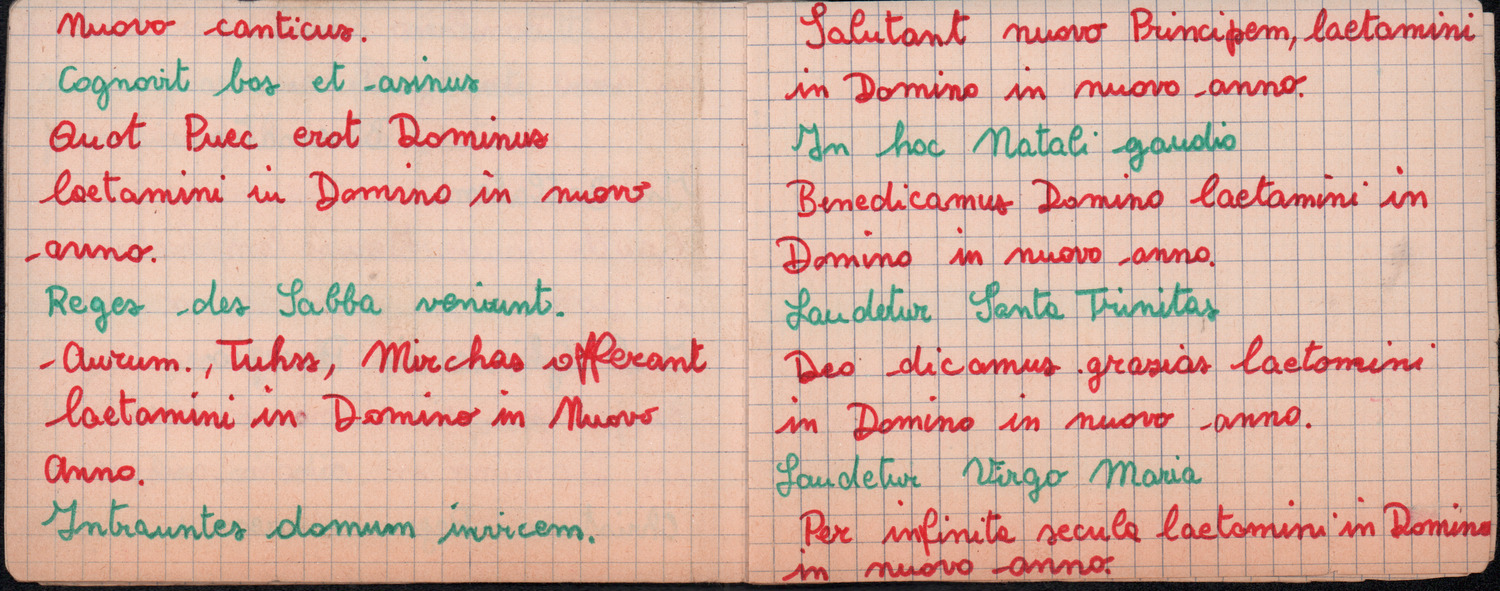 nuovo canticus.
Cognovit bos et asinus
Quot Puec erot Dominus
laetamini in Domino in nuovo
anno.
Reges des Sabba veniunt.
Aurum., Tuhss, Mirchas offerant
laetamini in Domino in Nuovo
Anno.
Intrauntes domum invicem.
Salutant nuovo Principem, laetamini
in Domino in nuovo anno.
In hoc Natali gaudio
Benedicamus Domino laetamini in
Domino in nuovo anno.
Laudetur Santa Trinitas
Deo dicamus grasias laetomini
in Domino in nuovo anno.
Laudetur Virgo Maria
Per infinita secula laetomini in Domino
in nuovo anno.